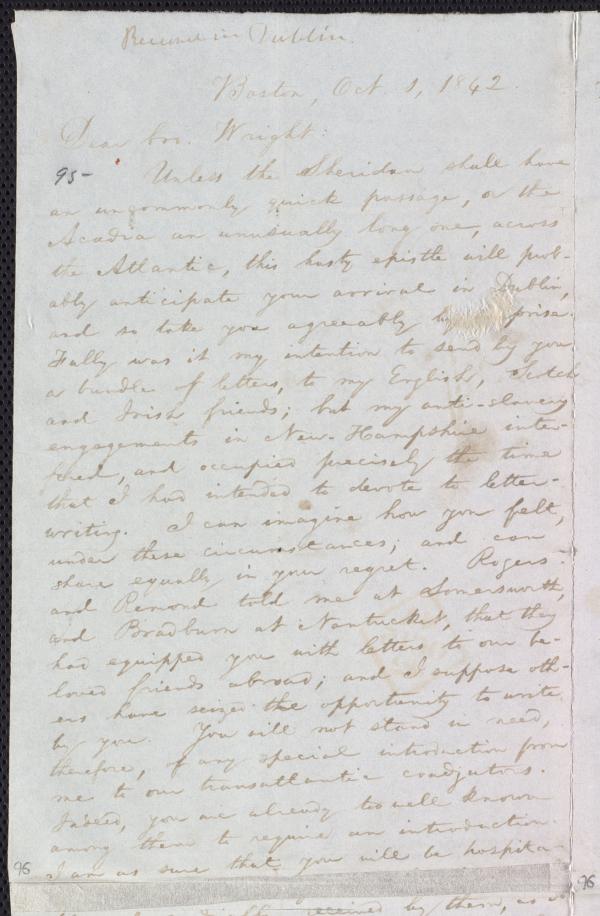 Received in Dublin.
Boston, Oct. 1, 1842.
Dear bro. Wright:
95- Unless the Sheridan shall have
an uncommonly quick passage, or the
Acadia an unusually long one, across
the Atlantic, this hasty epistle will prob-
ably anticipate your arrival in Dublin,
and so take you agreeably by prise.
Fully was it my intention to send by you
a bundle of letters, to my English, Scotch
and Irish friends; but my anti-slavery
engagements in New-Hampshire inter-
fered, and occupied precisely the time
that I had intended to devote to letter-
writing. I can imagine how you felt,
under these circumstances; and can
share equally in your regret. Rogers
and Remond told me at Somersworth,
and Bradburn at Nantucket, that they
had equipped you with letters to our be-
loved friends abroad; and I suppose oth-
ers have seized the opportunity to write
by you. You will not stand in need,
therefore, of any special introduction from
me to our transatlantic coadjutors.
Indeed, you are already too well known
among them to require an introduction.
I am as sure that you will be hospita-
received by them, as
96
96